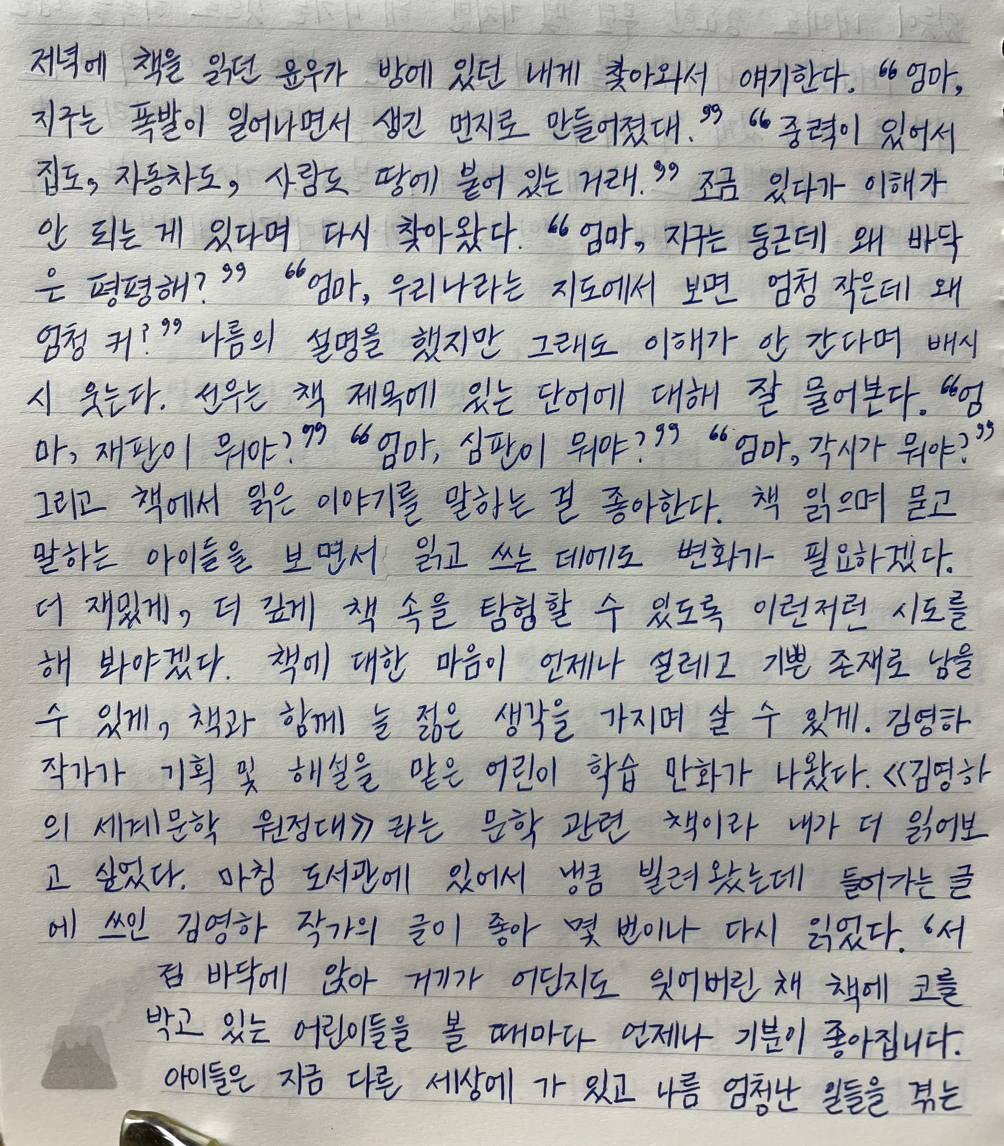 저녁에 책을 읽던 윤우가 방에 있던 내게 찾아와서 얘기한다. “엄마,
지구는 폭발이 일어나면서 생긴 먼지로 만들어졌대.” “중력이 있어서
집도, 자동차도, 사람도 땅에 붙어 있는 거래.” 조금 있다가 이해가
안 되는 게 있다며 다시 찾아왔다. “엄마, 지구는 둥근데 왜 바닥
은 평평해?” “엄마, 우리나라는 지도에서 보면 엄청 작은데 왜
엄청 커?” 나름의 설명을 했지만 그래도 이해가 안 간다며 배시
시 웃는다. 선우는 책 제목에 있는 단어에 대해 잘 물어본다. “엄
마, 재판이 뭐야?” “엄마, 심판이 뭐야?” “엄마, 각시가 뭐야?”
그리고 책에서 읽은 이야기를 말하는 걸 좋아한다. 책 읽으며 묻고
말하는 아이들을 보면서 읽고 쓰는 데에도 변화가 필요하겠다.
더 재밌게, 더 깊게 책 속을 탐험할 수 있도록 이런저런 시도를
해 봐야겠다. 책에 대한 마음이 언제나 설레고 기쁜 존재로 남을
수 있게, 책과 함께 늘 젊은 생각을 가지며 살 수 있게. 김영하
작가가 기획 및 해설을 맡은 어린이 학습 만화가 나왔다. 《김영하
의 세계문학 원정대》라는 문학 관련 책이라 내가 더 읽어보
고 싶었다. 마침 도서관에 있어서 냉큼 빌려왔는데 들어가는 글
에 쓰인 김영하 작가의 글이 좋아 몇 번이나 다시 읽었다. ‘서
점 바닥에 앉아 거기가 어딘지도 잊어버린 채 책에 코를
박고 있는 어린이들을 볼 때마다 언제나 기분이 좋아집니다.
아이들은 지금 다른 세상에 가 있고 나름 엄청난 일들을 겪는